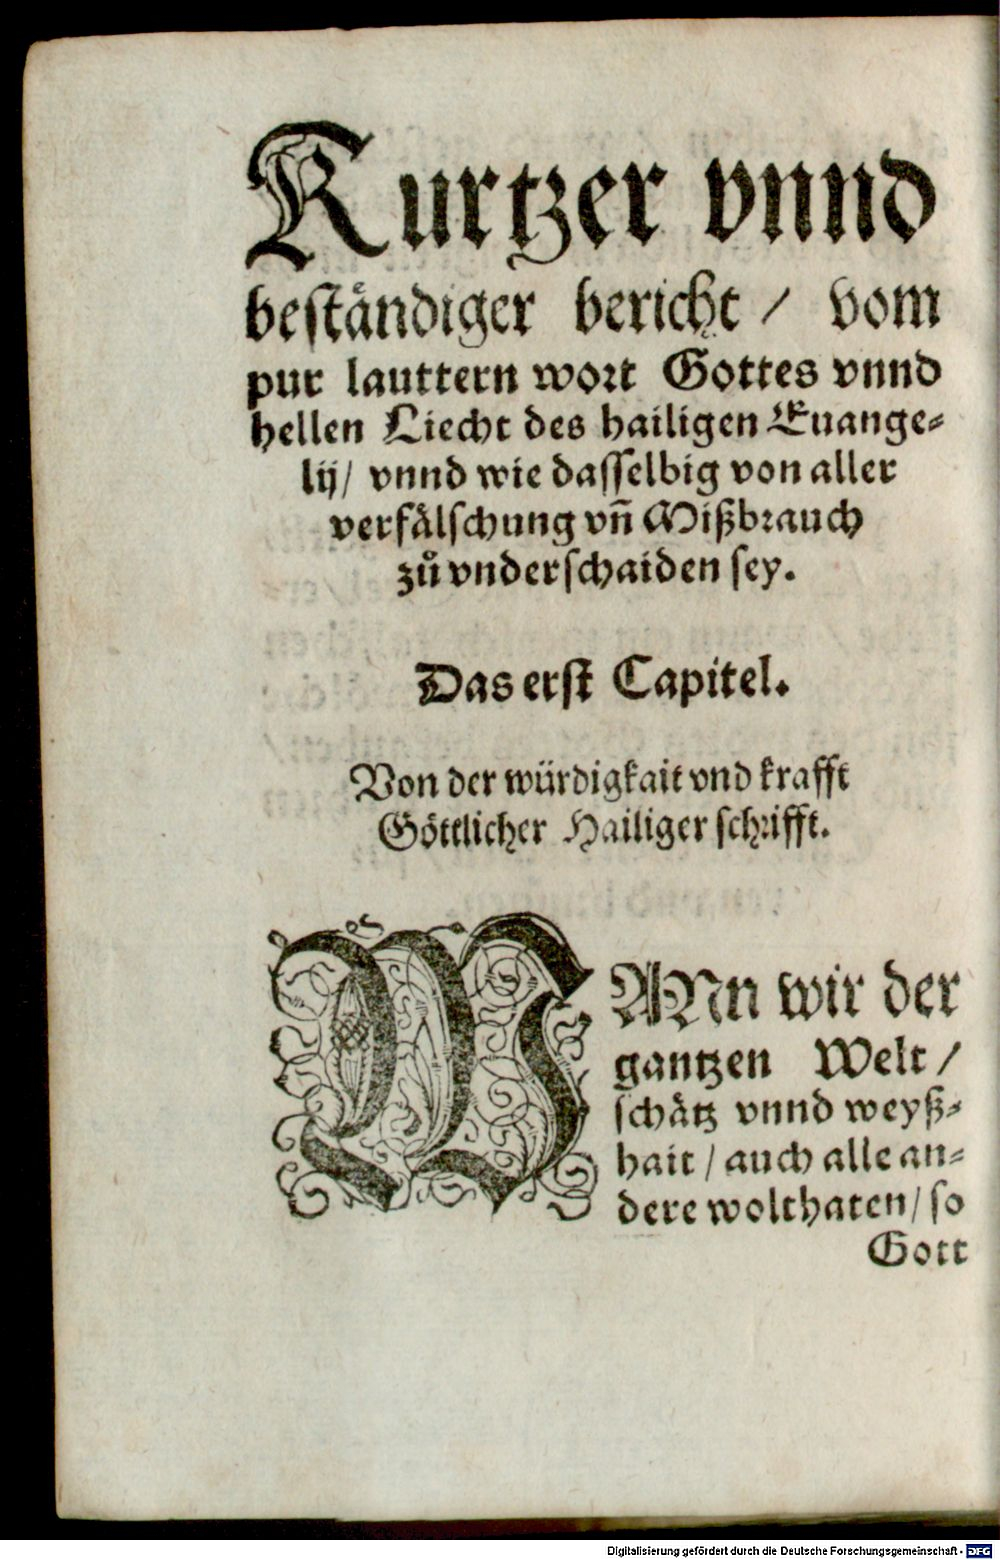 Kurtzer vnnd
beständiger bericht / vom
pur lauttern wort Gottes vnnd
hellen Liecht des hailigen Euange⸗
lij / vnnd wie dasselbig von aller
verfälschung vñ Mißbrauch
zů vnderschaiden sey.
Das erst Capitel.
Von der würdigkait vnd krafft
Göttlicher Hailiger schrifft.
WANn wir der
gantzen Welt /
schätz vnnd weyß⸗
hait / auch alle an⸗
dere wolthaten / so
Gott
Digitalisierung gefördert durch die Deutsche Forschungsgemeinschaft - DFG